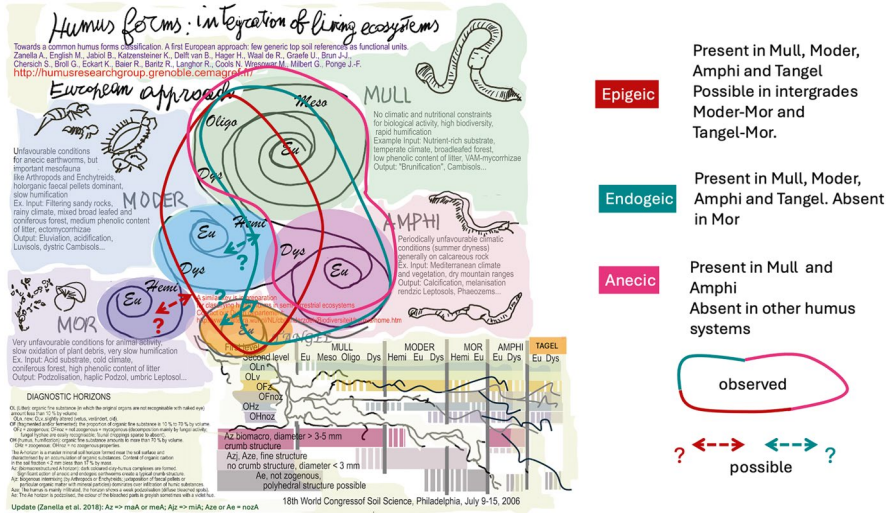 Humus forms: integration of living ecosystems
Towards a common humus forms classification. A first European approach: few generic top soil references as functional units.
Zanella A., English M., Jabiol B., Katzensteiner K., Delft van B., Hager H., Waal de R., Graefe U., Brun J-J.,
Chersich S., Broll G., Eckart K., Baier R., Baritz R., Langhor R., Cools N. Wresowar M., Milbert G., Ponge J.-F.
http://humusresearchgroup.grenoble.cemagref.fr/
European approach
MULL
No climatic and nutritional constraints
for biological activity, high biodiversity,
rapid humification
Example Input: Nutrient-rich substrate,
temperate climate, broadleafed forest,
low phenolic content of litter, VAM-mycorrhizae
Output: "Brunification", Cambisols...
Oligo
Meso
Eu
Dys
Unfavourable conditions
for anecic earthworms, but
important mesofauna
like Arthropods and Enchytreids,
holorganic faecal pellets dominant,
slow humification
Ex. Input: Filtering sandy rocks,
rainy climate, mixed broad leafed and
coniferous forest, medium phenolic content
of litter, ectomycorrhizae
Output: Eluviation, acidification,
Luvisols, dystric Cambisols...
MODER
Eu
Hemi
?
Dys
AMPHI
Periodically unfavourable climatic
conditions (summer dryness)
generally on calcareous rock
Ex. Input: Mediterranean climate
and vegetation, dry mountain ranges
Output: Calcification, melanisation
rendzic Leptosols, Phaeozems...
Dys
Eu
MOR
Eu
Hemi
?
?
Eu
Very unfavourable conditions for animal activity,
slow oxidation of plant debris, very slow humification
Ex. Input: Acid substrate, cold climate,
coniferous forest, high phenolic content of litter
Output: Podzolisation, haplic Podzol, umbric Leptosol...
TANGEL
First level
MULL
MODER
MOR
AMPHI
TAGEL
Second level
Eu Meso Oligo Dys
Hemi Eu Dys
Hemi Eu
Eu Dys
Eu Dys
OLn
OLv
OFz
OFnoz
OHz
OHnoz
Az biomacro, diameter > 3-5 mm
crumb structure
Azj, Aze, fine structure
no crumb structure, diameter < 3 mm
Ae, not zoogenous,
polyhedral structure possible
DIAGNOSTIC HORIZONS
18th World Congressof Soil Science, Philadelphia, July 9-15, 2006
Update (Zanella et al. 2018): Az => maA or meA; Ajz => miA; Aze or Ae = nozA
Epigeic
Present in Mull, Moder,
Amphi and Tangel
Possible in intergrades
Moder-Mor and
Tangel-Mor.
Endogeic
Present in Mull, Moder,
Amphi and Tangel. Absent
in Mor
Anecic
Present in Mull and
Amphi
Absent in other humus
systems
observed
? ?
possible